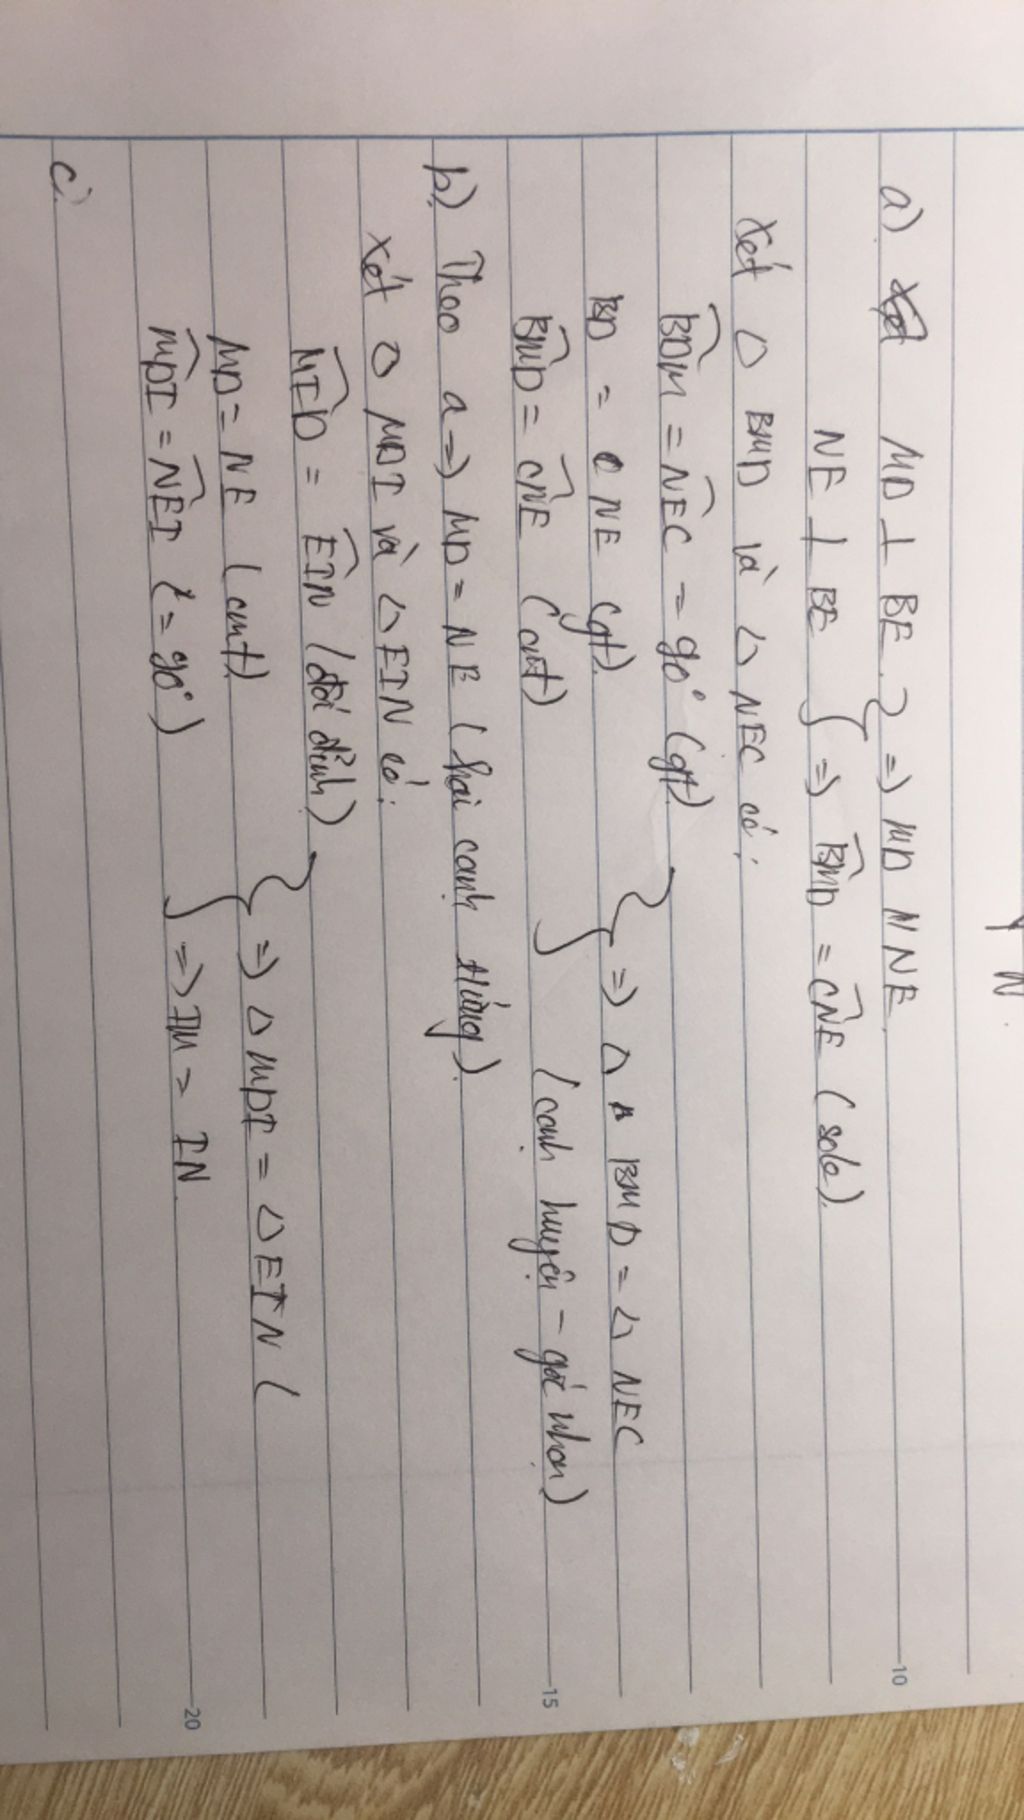 N
a) MD ⊥ BE } => MD // NE.
NE ⊥ BE } => BMD = CNE (sole).
Xét △ BMD và △ NEC có:
BDM = NEC = 90° (gt)
BD = NE (gt). } => △ BMD = △ NEC
BMD = CNE (cmt) (cạnh huyền - góc nhọn)
b) Theo a => MD = NE (hai cạnh tướng).
Xét △ MDI và △ EIN có:
MID = EIN (đối đỉnh)
MD = NE (cmt) } => △ MDI = △ EIN (
MDI = NEI (= 90°) => IM = IN.
c)
10
15
20